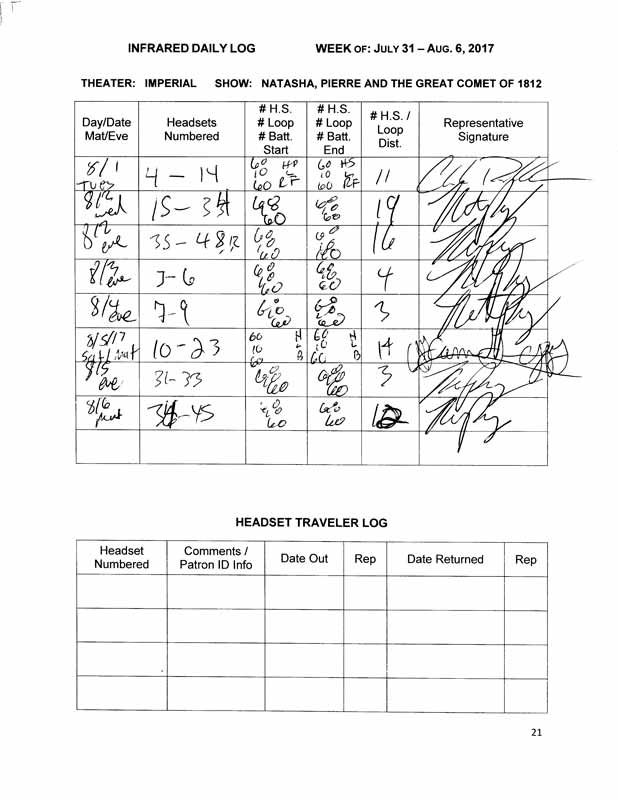 INFRARED DAILY LOG WEEK OF: JULY 31 – AUG. 6, 2017
THEATER: IMPERIAL SHOW: NATASHA, PIERRE AND THE GREAT COMET OF 1812
Day/Date Mat/Eve
Headsets Numbered
# H.S. # Loop # Batt. Start
# H.S. # Loop # Batt. End
# H.S. / Loop Dist.
Representative Signature
8/1 Tues 4 – 14 60 10 60 60 HS 10 60 RF 11
8/2 wed 15 – 60 60 19
8/2 eve 35 – 48 60 16
8/3 eve 3-6 60 60 4
8/4 eve 7-9 60 60 3
8/5/17 Sat/Mat 10-23 60 H 10 L 60 B 60 H 10 L 60 B 14
8/5 eve 31-33 60 60 3
8/6 mat -45 60 60
HEADSET TRAVELER LOG
Headset Numbered
Comments / Patron ID Info
Date Out
Rep
Date Returned
Rep
21